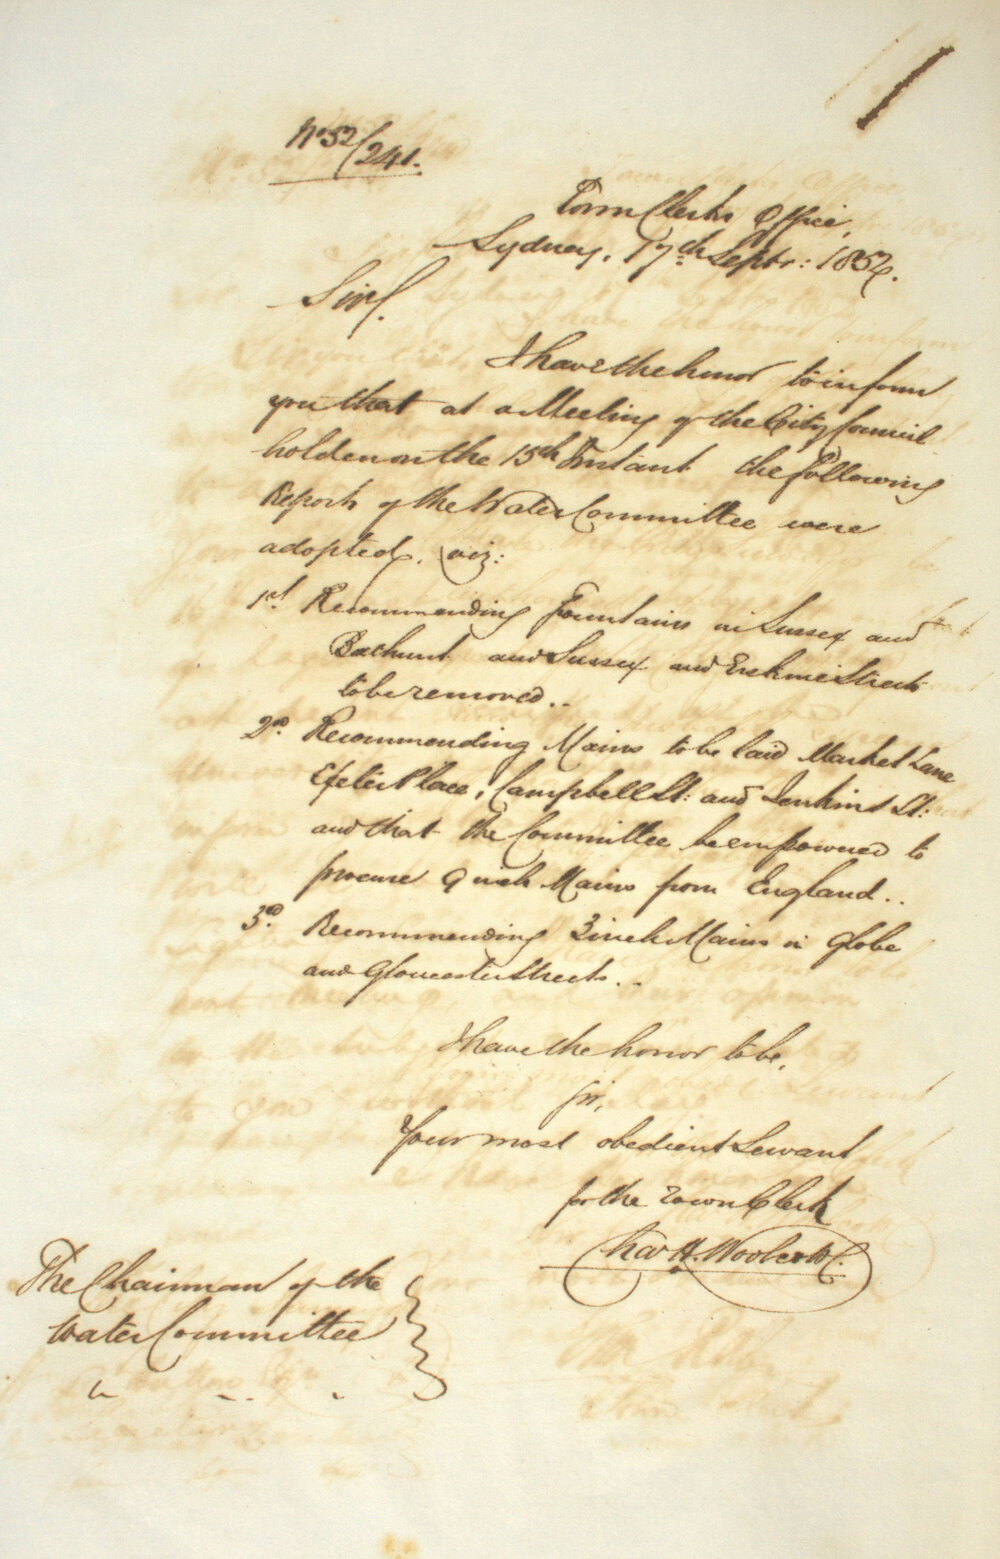 No 52/241.
Town Clerk's Office,
Sydney, 17th Septr: 1852.
Sir,
I have the honor to inform
you that at a Meeting of the City Council
holden on the 15th Instant the following
Reports of the Water Committee were
adopted, viz:
1st. Recommending Fountains in Sussex and
Bathurst and Sussex and Erskine Streets
to be removed..
2nd. Recommending Mains to be laid Market Lane
Exeter Place, Campbell St: and Jenkins St:
and that the Committee be empowered to
procure 9 inch Mains from England..
3rd. Recommending 3 inch Mains in Globe
and Gloucester Streets..
I have the honor to be,
Sir,
Your most obedient Servant
for the Town Clerk
Chas H. Woolcott
The Chairman of the
Water Committee